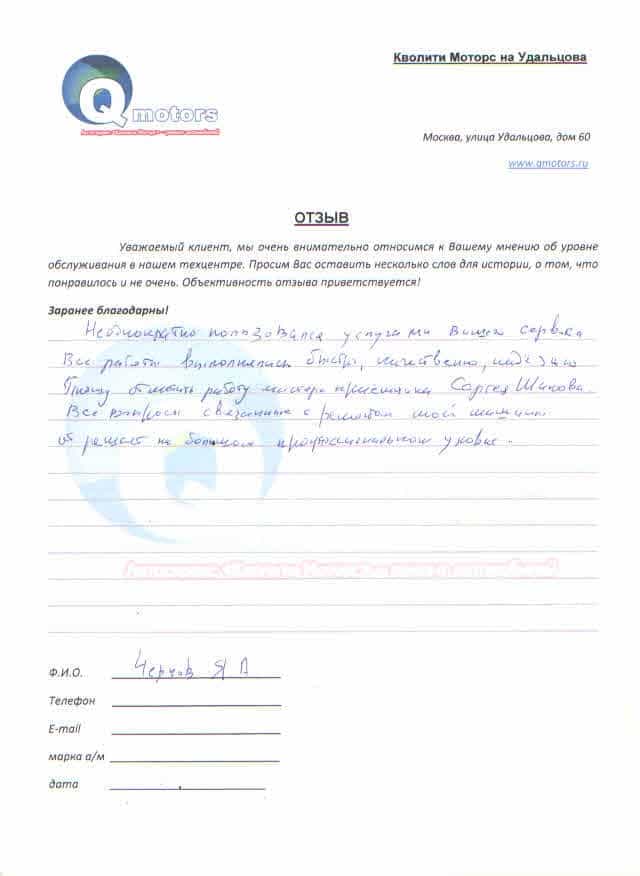 Кволити Моторс на Удальцова
Q motors
Москва, улица Удальцова, дом 60
www.qmotors.ru
ОТЗЫВ
Уважаемый клиент, мы очень внимательно относимся к Вашему мнению об уровне
обслуживания в нашем техцентре. Просим Вас оставить несколько слов для истории, о том, что
понравилось и не очень. Объективность отзыва приветствуется!
Заранее благодарны!
Неоднократно пользовался услугами Вашего сервиса
Все работы выполнялись быстро, качественно, надежно
отметить работу мастера приемщика Сергея
Все вопросы связанные с ремонтом моей машины
он решает на большом профессиональном уровне.
Ф.И.О. Чернов Я А
Телефон
E-mail
марка а/м
дата